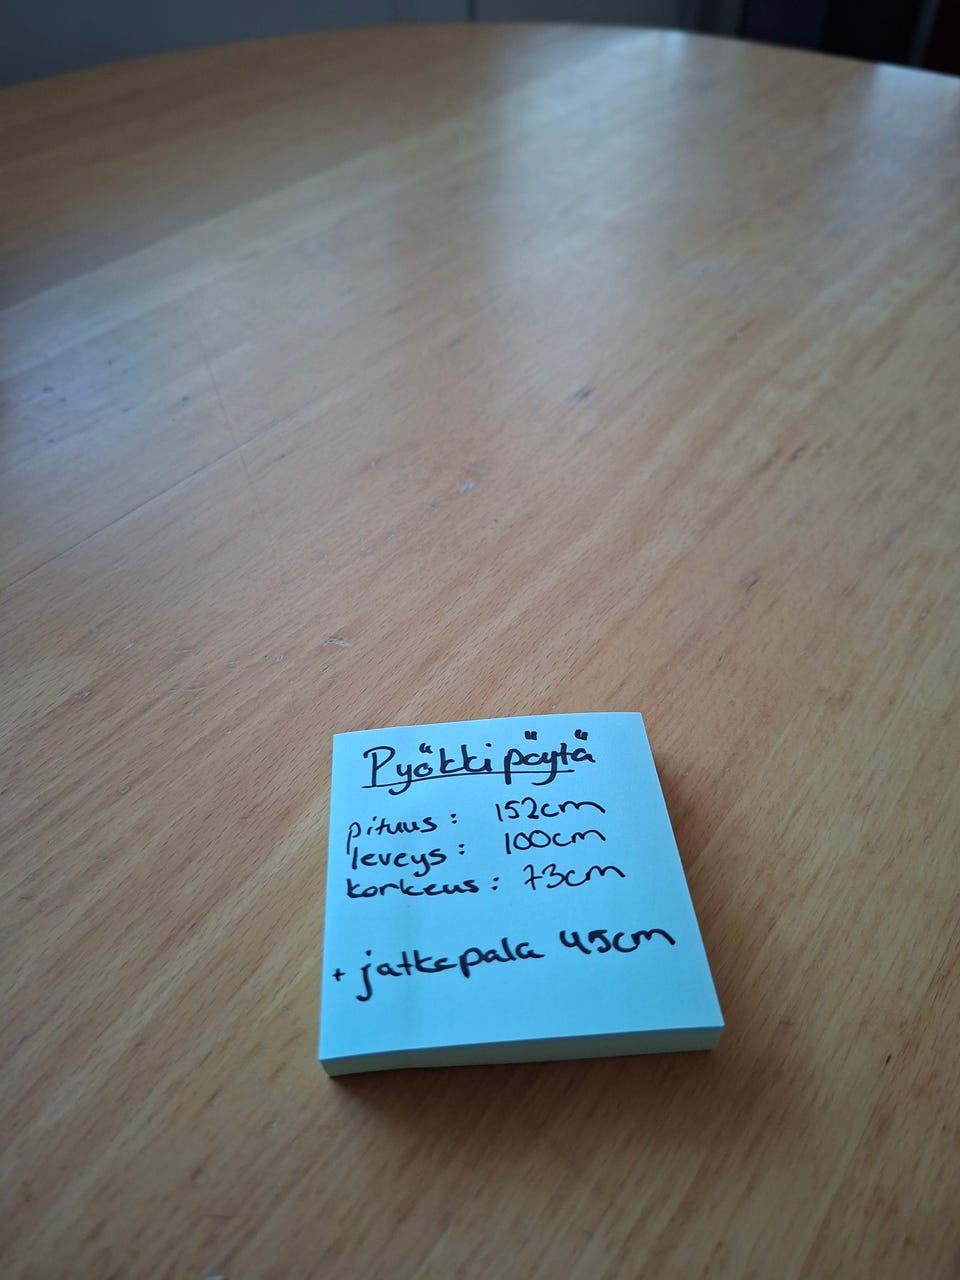 Pyökkipöytä
pituus: 152cm
leveys: 100cm
korkeus: 73cm
+ jatkopala 45cm